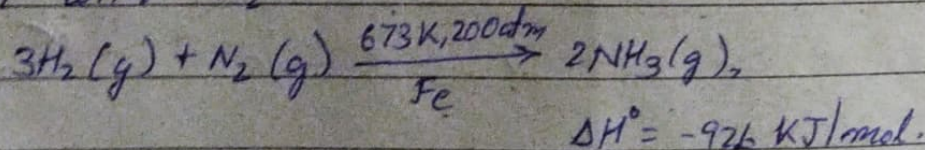 3H₂(g) + N₂(g) \xrightarrow[Fe]{673K, 200atm} 2NH₃(g),
ΔH° = -92.6 KJ/mol.